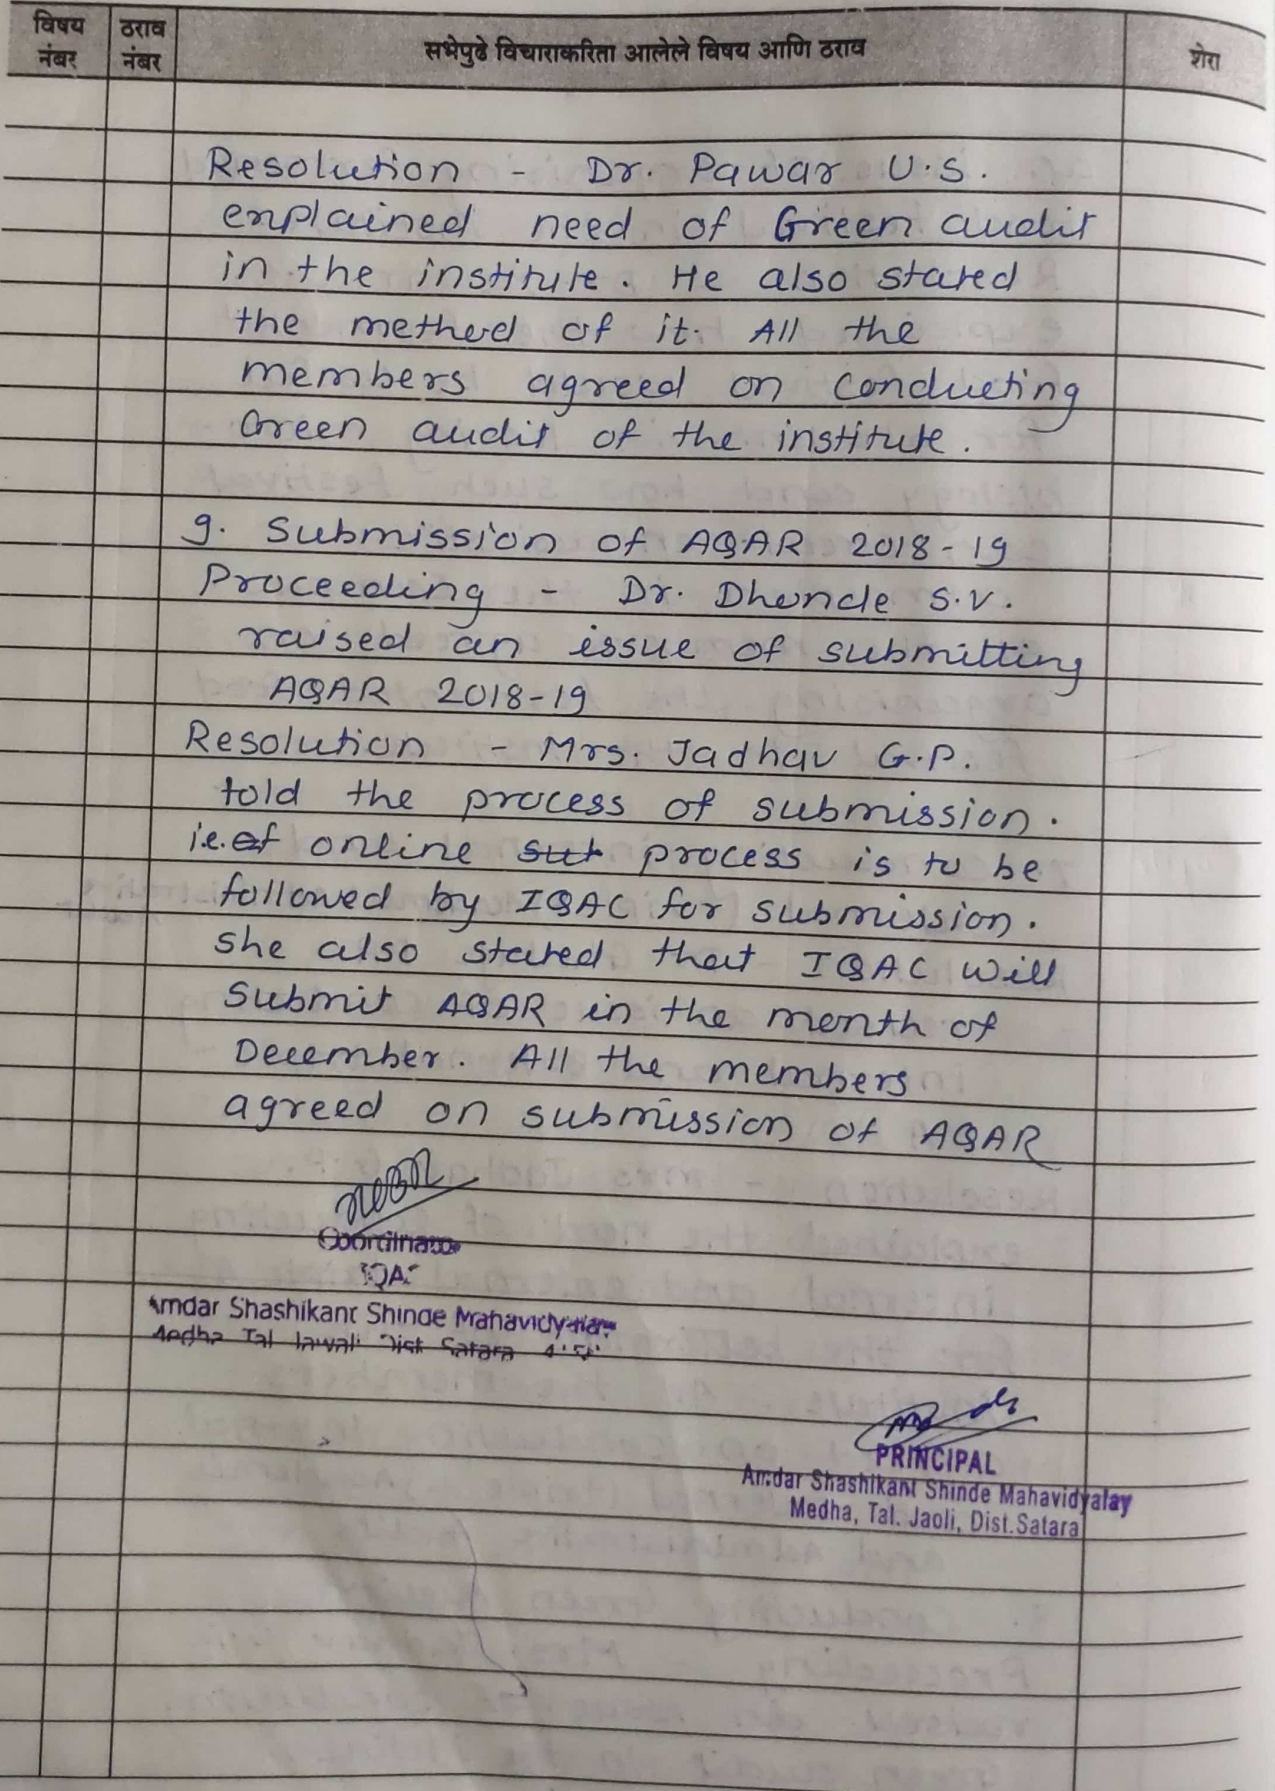 विषय नंबर
ठराव नंबर
सभेपुढे विचाराकरिता आलेले विषय आणि ठराव
शेरा
Resolution - Dr. Pawar U.S.
explained need of Green audit
in the institute. He also stated
the method of it. All the
members agreed on conducting
Green audit of the institute.
9. Submission of AQAR 2018-19
Proceeding - Dr. Dhonde S.V.
raised an issue of submitting
AQAR 2018-19
Resolution - Mrs. Jadhav G.P.
told the process of submission.
i.e. of online sub process is to be
followed by IQAC for submission.
She also stated that IQAC will
submit AQAR in the month of
December. All the members
agreed on submission of AQAR
Coordinator
IQAC
Amdar Shashikant Shinde Mahavidyalay
Medha Tal Jawali Dist Satara
PRINCIPAL
Amdar Shashikant Shinde Mahavidyalay
Medha, Tal. Jaoli, Dist.Satara